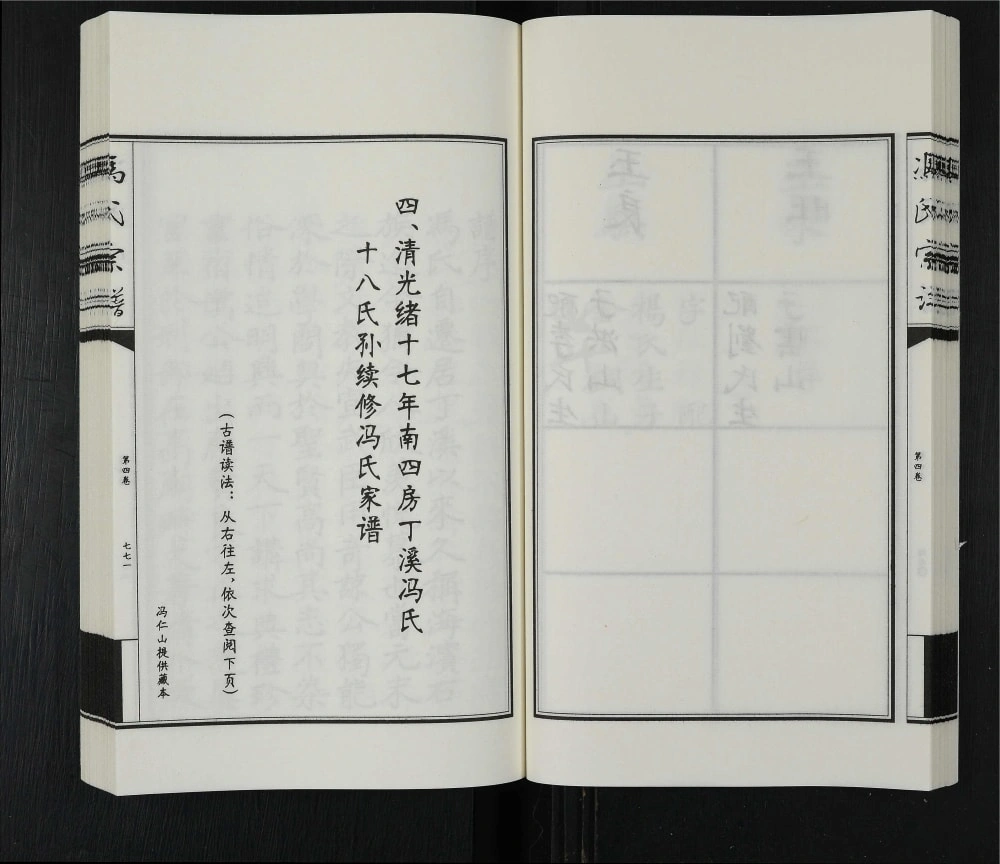 冯氏宗谱
第四卷
四、清光绪十七年南四房丁溪冯氏
十八氏孙续修冯氏家谱
（古谱读法：从右往左，依次查阅下页）
冯仁山提供藏本
冯氏宗谱
第四卷
七七一